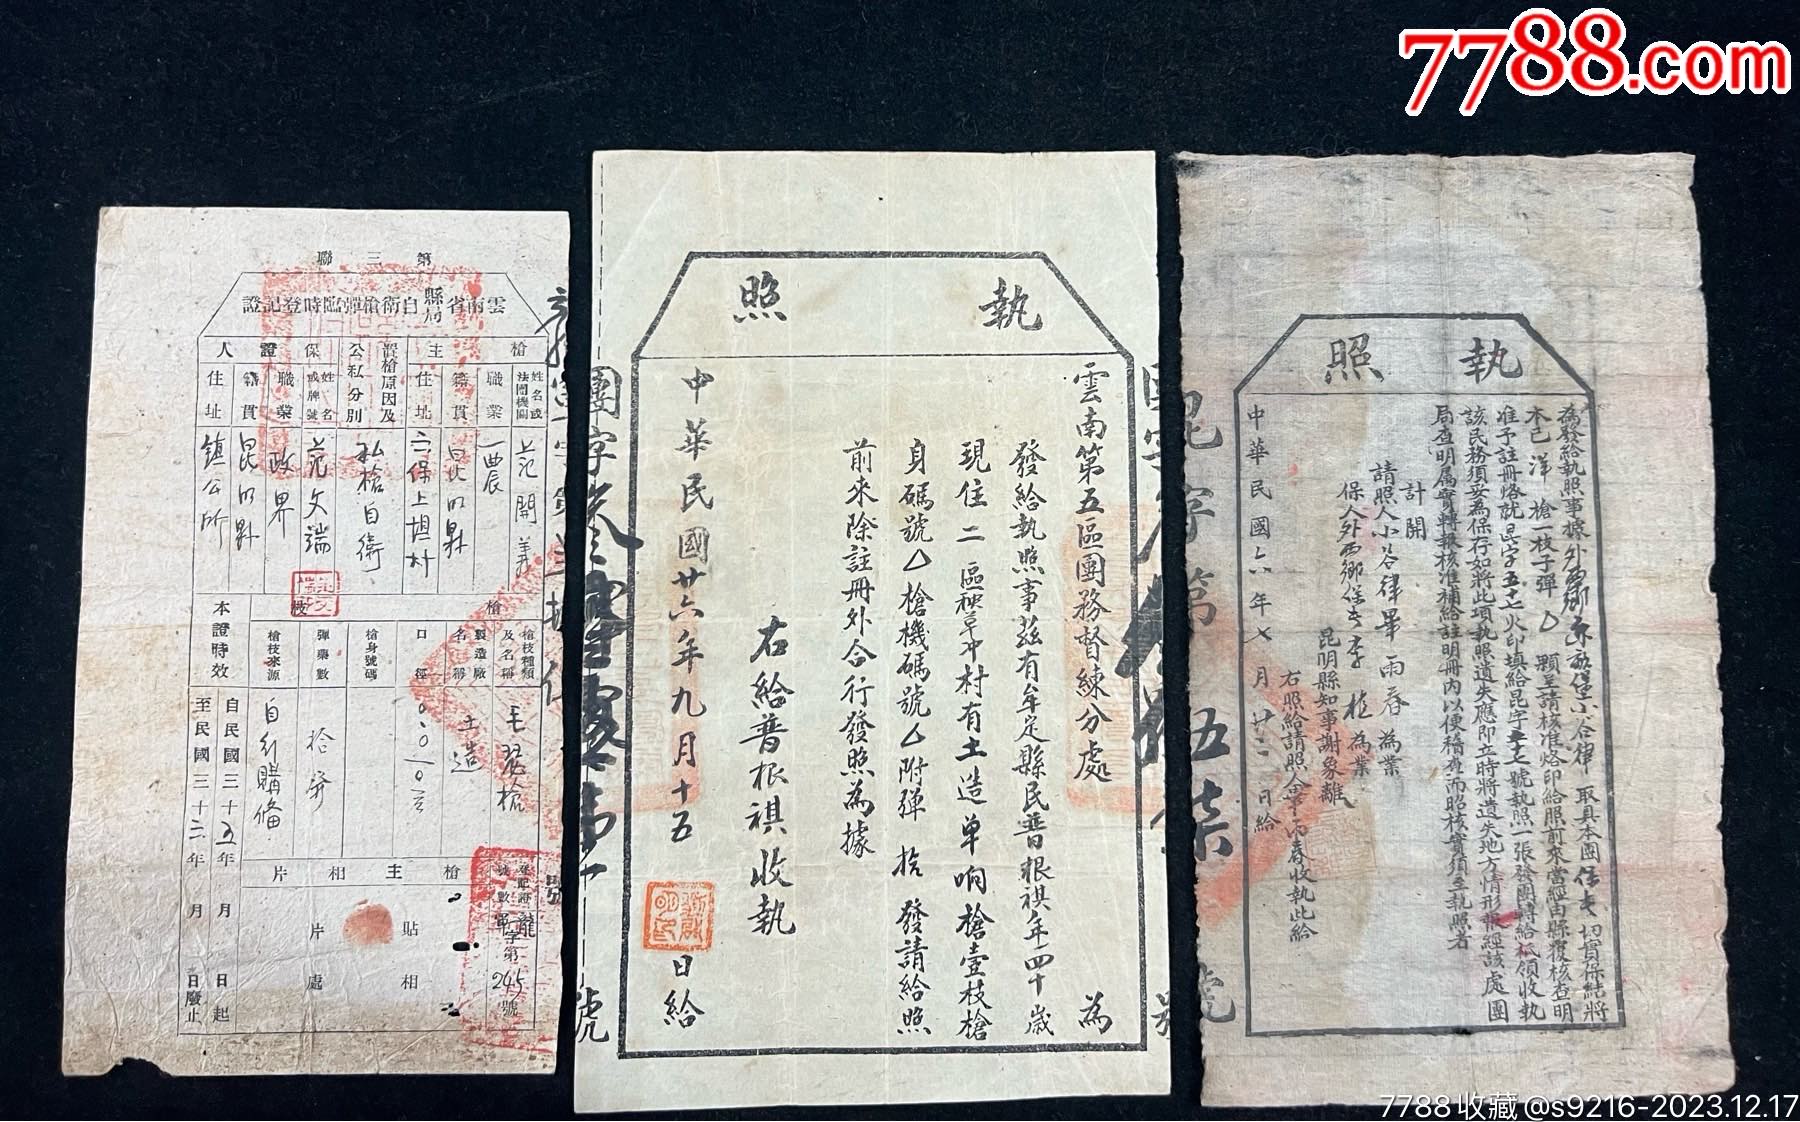 7788.com
第三聯
雲南省縣局自衛槍彈臨時登記證
槍主
姓名或法團機關
范開義
職業
農
籍貫
昆明縣
住址
六保上壩村
置槍原因及公私分別
私槍自衛
保證人
姓名或牌號
范文端
職業
政界
籍貫
昆明縣
住址
鎮公所
槍枝
槍枝種類及名稱
毛瑟槍
製造廠名稱
土造
口徑
槍身號碼
彈藥數
拾發
槍枝來源
自行購備
本證時效
自民國三十五年 月 日起
至民國三十二年 月 日廢止
槍主相片
貼相片處
登記證號數
龍軍字第245號
執照
雲南第五區團務督練分處 為
發給執照事茲有牟定縣民普根祺年四十歲
現住二區秧草冲村有土造单响槍壹枝槍
身碼號 槍機碼號 附彈 拾 發請給照
前來除註冊外合行發照為據
右給普根祺收執
中華民國廿六年九月十五日給
執照
為發給執照事據外西鄉 堡小谷律 取具本團保长切實保結將
本已洋槍一枝子彈 顆呈請核准烙印給照前來當經由縣覆核查明
准予註冊烙就昆字五十七火印填給昆字五十七號執照一張發團轉給祗領收執
該民務須妥為保存如將此項執照遺失應即立時將遺失地方情形報經該處團
局查明屬實轉報核准補給註明冊內以便稽查而昭核實須至執照者
計開
請照人小谷律畢雨春為業
保人外西鄉保长李植為業
昆明縣知事謝象離
右照給請照人畢雨春收執此給
中華民國六年七月廿二日給
7788收藏@s9216-2023.12.17